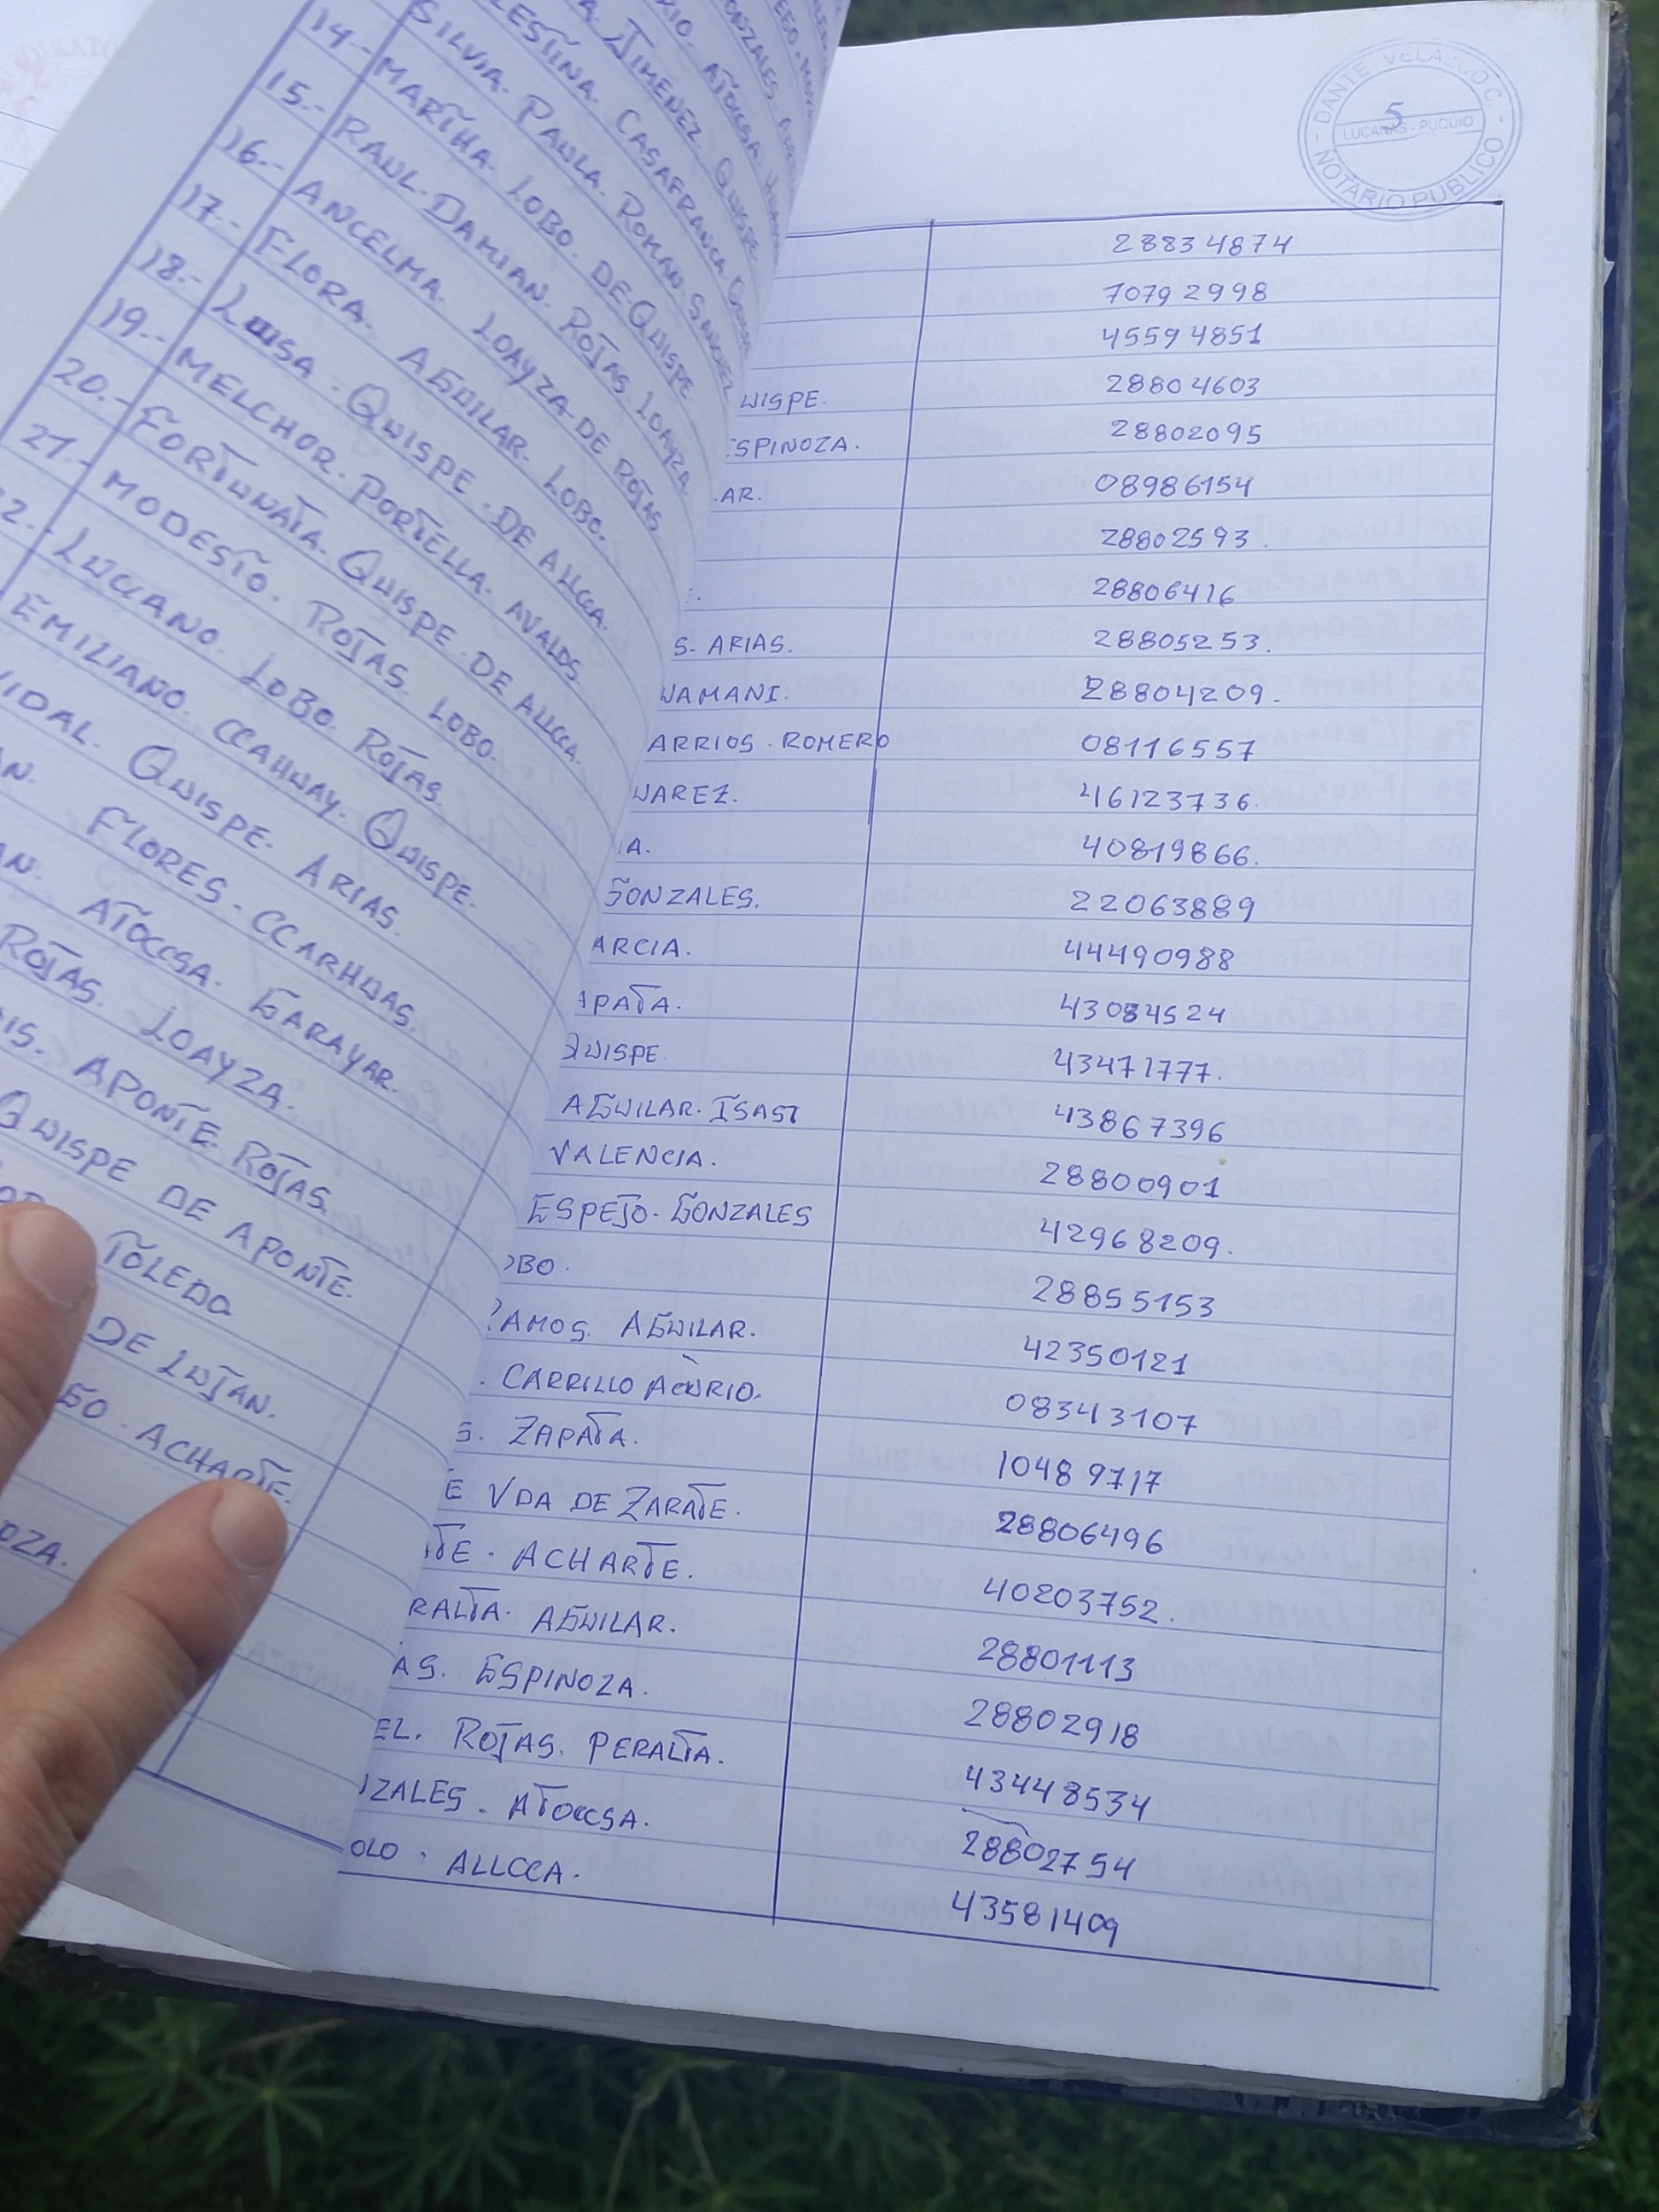 SILVIA. PAULA. ROMAN. SANCHEZ
14.- MARTHA. LOBO. DE QUISPE
15.- RAUL. DAMIAN. ROJAS. LOAYZA
16.- ANCELMA. LOAYZA. DE ROJAS
17.- FLORA. AGUILAR. LOBO.
18.- LUISA. QUISPE. DE ALLCCA.
19.- MELCHOR. PORTILLA. AVALOS.
20.- FORTUNATA. QUISPE. DE ALLCCA.
21.- MODESTO. ROJAS. LOBO.
2.- LUCIANO. LOBO. ROJAS.
EMILIANO. CCAHUAY. QUISPE.
IDAL. QUISPE. ARIAS.
N. FLORES. CCARHUAS.
N. ATOCCSA. GARAYAR.
ROJAS. LOAYZA.
IS. APONTE. ROJAS.
QUISPE DE APONTE.
TOLEDO
DE LUJAN.
GO. ACHARTE.
OZA.
DANTE VELASCO C.
5
LUCANAS - PUQUIO
NOTARIO PUBLICO
28834874
70792998
45594851
UISPE. 28804603
SPINOZA. 28802095
AR. 08986154
28802593.
28806416
S. ARIAS. 28805253.
UAMANI. 28804209.
ARRIOS. ROMERO 08116557
UAREZ. 46123736.
A. 40819866.
GONZALES. 22063889
ARCIA. 44490988
APATA. 43084524
QUISPE. 43471777.
AGUILAR. ISASI 43867396
VALENCIA. 28800901
ESPEJO. GONZALES 42968209.
OBO. 28855153
RAMOS. AGUILAR. 42350121
. CARRILLO ACURIO. 08343107
S. ZAPATA. 10489717
E VDA DE ZARATE. 28806496
TE. ACHARTE. 40203752.
RALTA. AGUILAR. 28801113
AS. ESPINOZA. 28802918
EL. ROJAS. PERALTA. 43448534
ZALES. ATOCCSA. 28802754
OLO. ALLCCA. 43581409